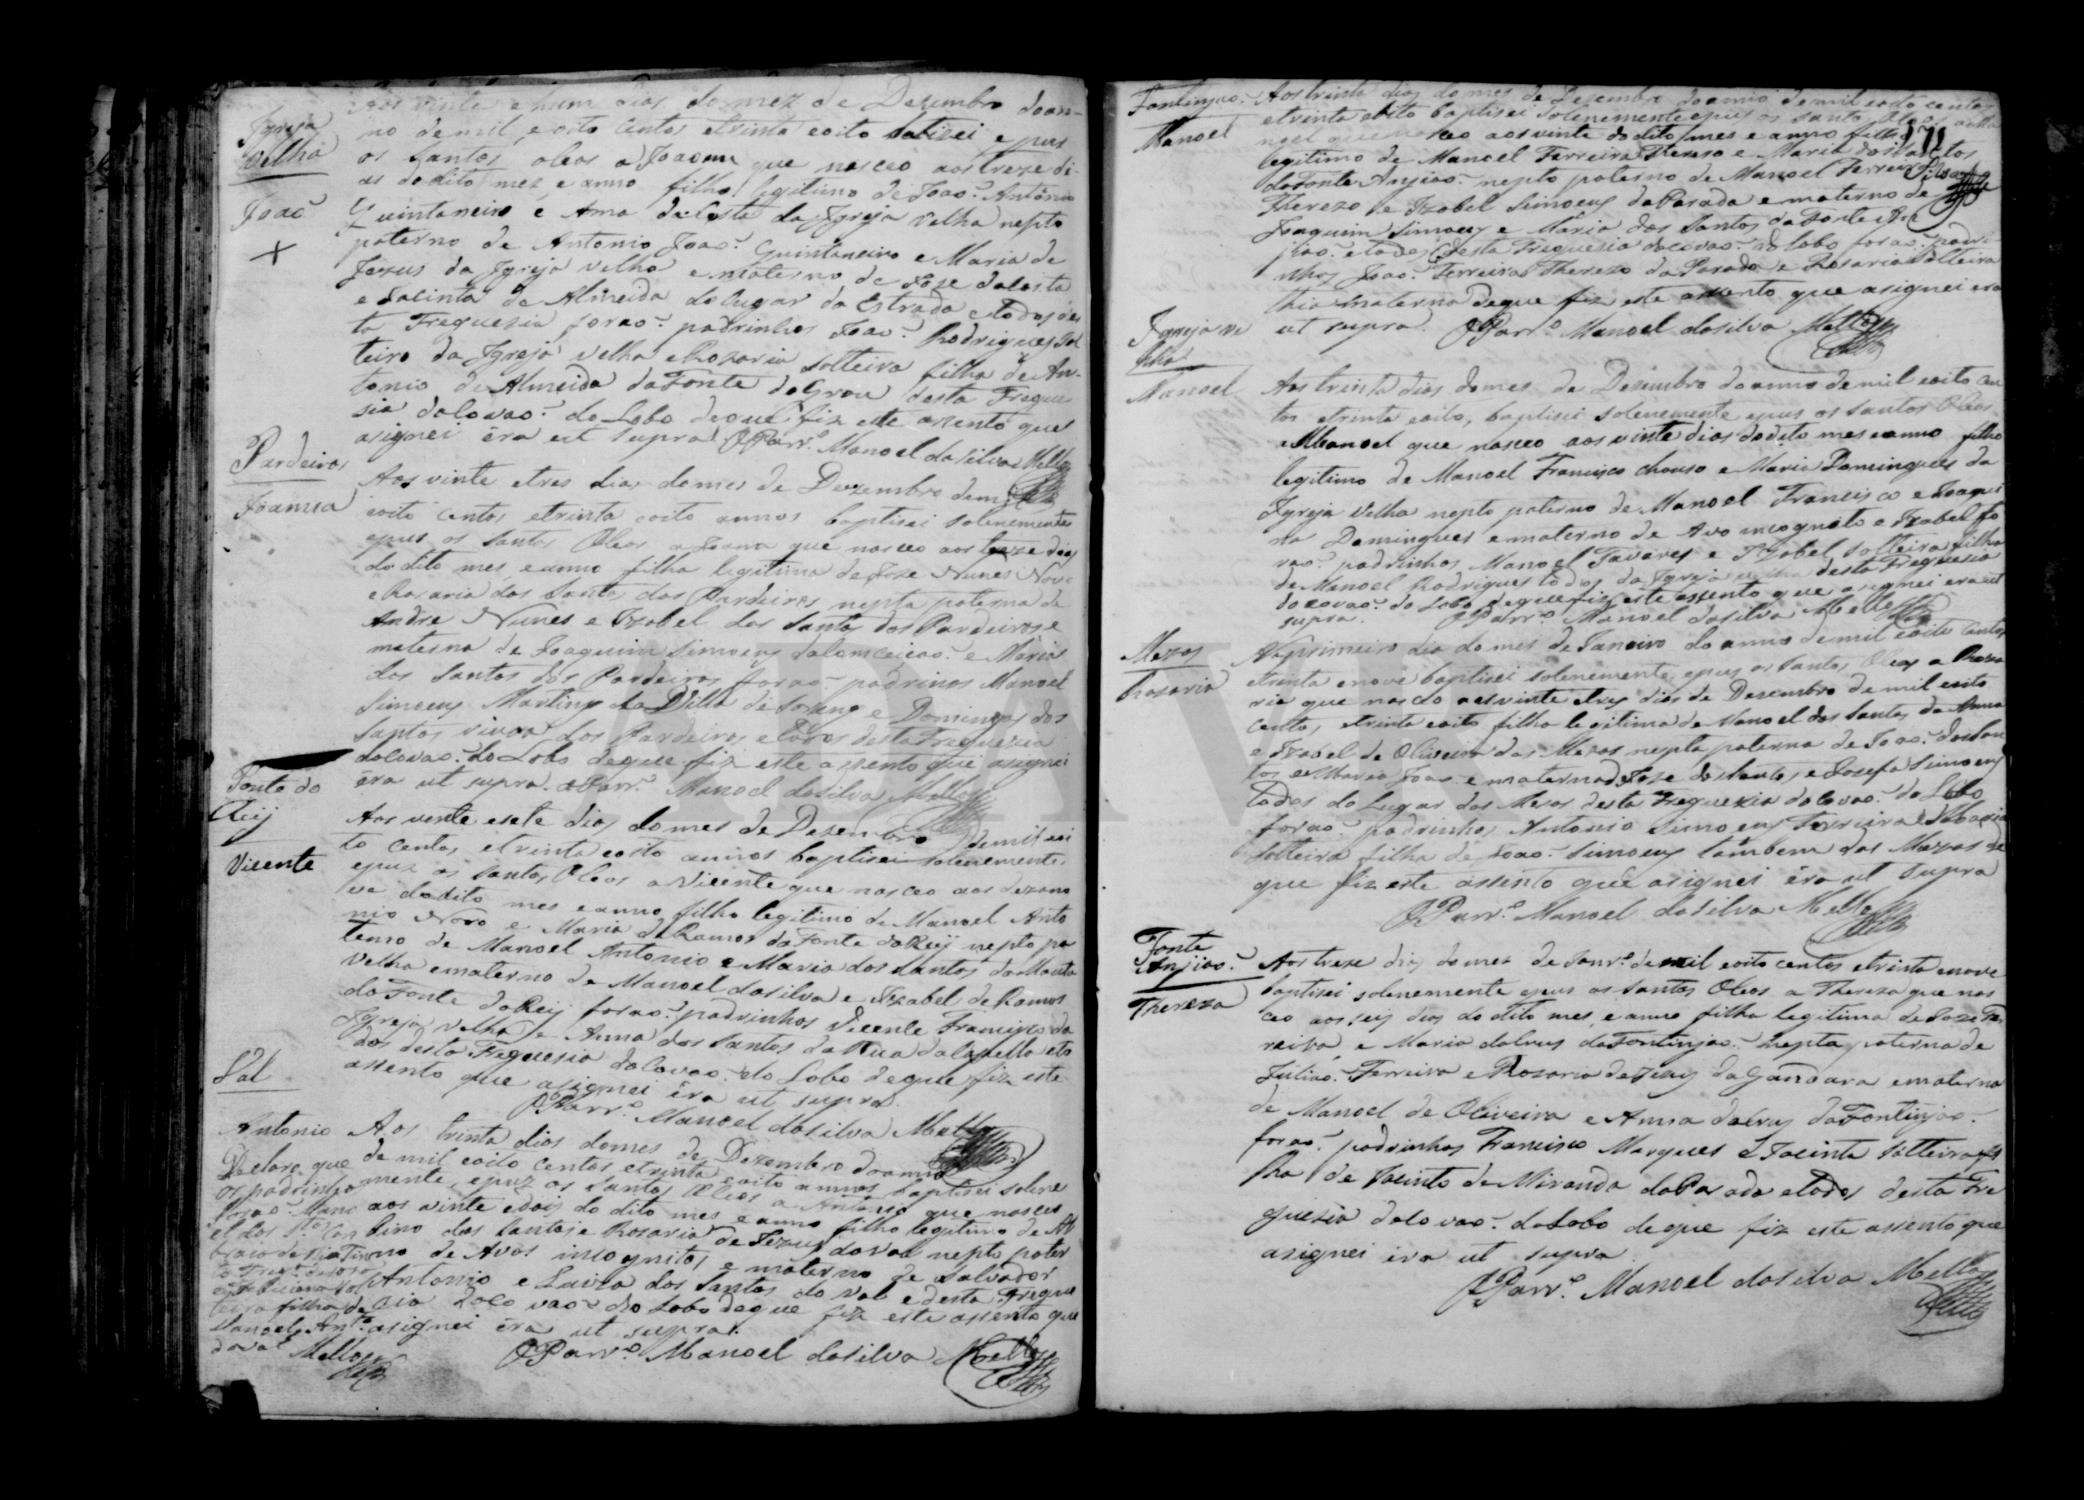 Igreja
Velha
João
+
Aos vinte e hum dias do mez de Dezembro do an-
no de mil, e oito centos e trinta e oito batizei e pus
os Santos oleos a Joaõ que nasceo aos treze di-
as do dito mez e anno filho legitimo de Joaõ Antonio
Quintaneiro e Anna da Costa da Igreja Velha nepto
paterno de Antonio Joaõ Quintaneiro e Maria de
Jezus da Igreja Velha e materno de Joze da Costa
e Jacinta de Almeida do lugar da Estrada e todos des
ta Freguezia foraõ padrinhos Joaõ Rodrigues Sol
teiro da Igreja Velha e Rozaria solteira filha de An-
tonio de Almeida da Fonte do Grou desta Fregue
sia do Covaõ do Lobo de que fiz este assento que
asignei era ut supra O Parr.º Manoel da Silva Mello
Pardeiros
Joanna
Aos vinte e tres dias do mes de Dezembro de mil
e oito centos e trinta e oito annos baptisei solenemente
e pus os Santos Oleos a Joana que nasceo aos treze dias
do dito mes e anno filha legitima de Joze Nunes Novo
e Rosaria dos Santos dos Pardeiros nepta paterna de
Andre Nunes e Izabel dos Santos dos Pardeiros e
materna de Joaquim Simoens da Conceicaõ e Maria
dos Santos dos Pardeiros foraõ padrinos Manoel
Simoens Martins da Villa de Soza e Domingas dos
Santos viuva dos Pardeiros e todos desta Freguezia
do Covaõ do Lobo de que fiz este assento que asignei
era ut supra. O Parr.º Manoel da Silva Mello
Fonte do
Reij
Vicente
Aos vente e sete dias do mes de Dezembro de mil oi
to centos e trinta e oito annos baptisei solenemente
e puz os Santos Oleos a Vicente que nasceo aos dezano
ve do dito mes e anno filho legitimo de Manoel Anto
nio Novo e Maria de Ramos da Fonte do Reij nepto pa
terno de Manoel Antonio e Maria dos Santos da Mouta
Velha e materno de Manoel da Silva e Izabel de Ramos
da Fonte do Reij foraõ padrinhos Vicente Francisco da
Igreja Velha e Anna dos Santos da Rua da Capella eto
dos desta Freguesia do Covaõ do Lobo de que fiz este
assento que asignei era ut supra.
O Parr.º Manoel da Silva Mello
Val
Antonio
Aos trinta dias do mes de Dezembro do anno
de mil e oito centos e trinta e oito annos baptisei solene
mente, e puz os Santos Oleos a Antonio que nasceo
aos vinte e dois do dito mes e anno filho legitimo de Al
bino dos Santos e Rosaria de Jezus do Val nepto pater
no de Avos incognitos e materno de Salvador
Antonio e Luiza dos Santos do Val e desta Fregue
cia do Covaõ do Lobo de que fiz este assento que
asignei era ut supra.
O Parr.º Manoel da Silva Mello
Declaro que
os padrinhos
foraõ Mano
el dos S.tos
filha de
Manoel Ant.º
do Val Mello
Fontinjaõ
Manoel
171
Aos trinta dias do mes de Dezembro do anno de mil e oito centos
e trinta e oito baptisei solenemente e pus os Santos Oleos a Ma
noel que nasceo aos vinte do dito mes e anno filho
legitimo de Manoel Ferreira Thereso e Maria dos Santos
da Fonte Anjiaõ nepto paterno de Manoel Ferreira
Therezo e Izabel Simoens da Parada e materno de
Joaquim Simoens e Maria dos Santos da Fonte An
jiaõ e todos desta Freguesia do Covaõ do Lobo foraõ padri
nhos Joaõ Ferreira Therezo da Parada e Rosaria solteira
thia materna de que fiz este assento que asignei era
ut supra. O Parr.º Manoel da Silva Mello
Igreja Ve
lha
Manoel
Aos trinta dias do mes de Dezembro do anno de mil e oito cen
tos e trinta e oito, baptisei solenemente e pus os Santos Oleos
a Manoel que nasceo aos vinte dias do dito mes e anno filho
legitimo de Manoel Francisco Chouso e Maria Domingues da
Igreja Velha nepto paterno de Manoel Francisco e Joaqui
na Domingues e materno de Avo incognito e Izabel fo
raõ padrinhos Manoel Tavares e Izabel solteira filha
de Manoel Rodrigues todos da Igreja Velha desta Freguesia
do Covaõ do Lobo de que fiz este assento que asignei era ut
supra. O Parr.º Manoel da Silva Mello
Mezas
Rosaria
Ao primeiro dia do mes de Janeiro do anno de mil e oito centos
e trinta e nove baptisei solenemente e pus os Santos Oleos a Roza
ria que nasceo aos vinte e tres dias de Dezembro de mil e oito
centos e trinta e oito filha legitima de Manoel dos Santos da
e Izabel de Oliveira das Mezas nepta paterna de Joaõ dos San
tos e Maria Joaõ e materna de Joze dos Santos e Josefa Simoens
todos do Lugar das Mezas desta Freguezia do Covaõ do Lobo
foraõ padrinhos Antonio Simoens Ferreira e Maria
solteira filha de Joaõ Simoens tambem das Mezas de
que fiz este assento que asignei era ut supra
O Parr.º Manoel da Silva Mello
Fonte
Anjiaõ
Thereza
Aos treze dias do mez de Janr.º de mil e oito centos e trinta e nove
baptisei solenemente e pus os Santos Oleos a Thereza que nas
ceo aos seis dias do dito mes e anno filha legitima de Joze Fe
rreira e Maria da Crus da Fontinjaõ nepta paterna de
Juliaõ Ferreira e Rozaria de Jezus da Gandara e materna
de Manoel de Oliveira e Anna da Crus da Fontinjaõ
foraõ padrinhos Francisco Marques e Jacinta solteira fi
lha de Jacinto de Miranda da Parada e todos desta Fre
guezia do Covaõ do Lobo de que fiz este assento que
asignei era ut supra
O Parr.º Manoel da Silva Mello